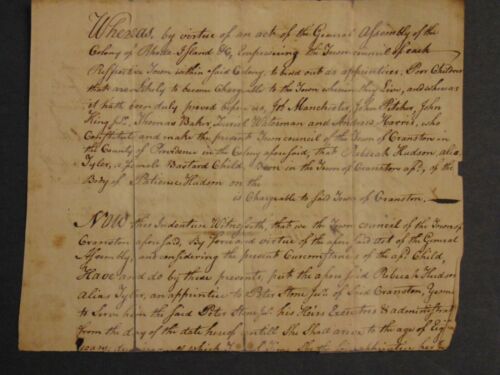 Whereas, by virtue of an act of the General Assembly of the
Colony of Rhode Island &c, Empowering the Town council of each
Respective Town within said Colony, to bind out as apprentices, Poor Children
that are likely to become Chargeable to the Town wherein they live, and whereas
it hath been duly proved before us, Job Manchester, John Pitcher, John
King Thomas Baker, Waterman and Andrew Harris, who
Constitute and make the present Town council of the Town of Cranston in
the County of Providence in the Colony aforesaid, that Rebecah Hudson, alias
Tyler, a female Bastard Child, Born in the Town of Cranston afsd, of the
Body of Patience Hudson on the
is Chargeable to said Town of Cranston.
Now this Indenture Witnesseth, that we the Town council of the Town of
Cranston aforesaid, By force and virtue of the aforesaid act of the General
Assembly, and considering the present Circumstances of the afsd Child,
Have and do by these presents, put the aforesaid Rebecah Hudson
alias Tyler, an apprentice to Peter Stone of said Cranston, Yeoman
to Serve him the said Peter Stone his Heirs Executors & administrat
From the day of the date hereof untill She Shall arive to the age of Eigh